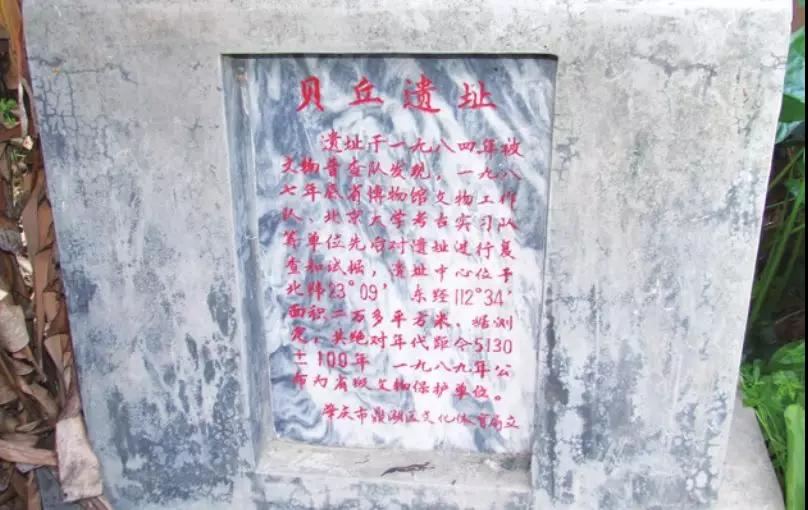 贝丘遗址
遗址于一九八四年被
文物普查队发现，一九八
七年底省博物馆文物工作
队、北京大学考古实习队
等单位先后对遗址进行复
查和试掘，遗址中心位于
北纬23°09′ 东经112°34′
面积二万多平方米，据测
定，其绝对年代距今5130
±100年 一九八九年公
布为省级文物保护单位。
肇庆市鼎湖区文化体育局立